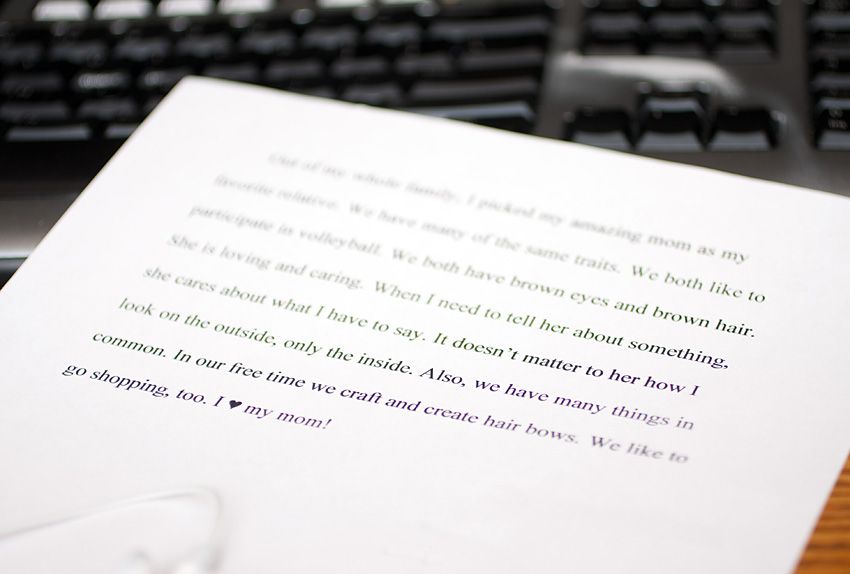 Out of my whole family, I picked my amazing mom as my
favorite relative. We have many of the same traits. We both like to
participate in volleyball. We both have brown eyes and brown hair.
She is loving and caring. When I need to tell her about something,
she cares about what I have to say. It doesn't matter to her how I
look on the outside, only the inside. Also, we have many things in
common. In our free time we craft and create hair bows. We like to
go shopping, too. I ♥ my mom!